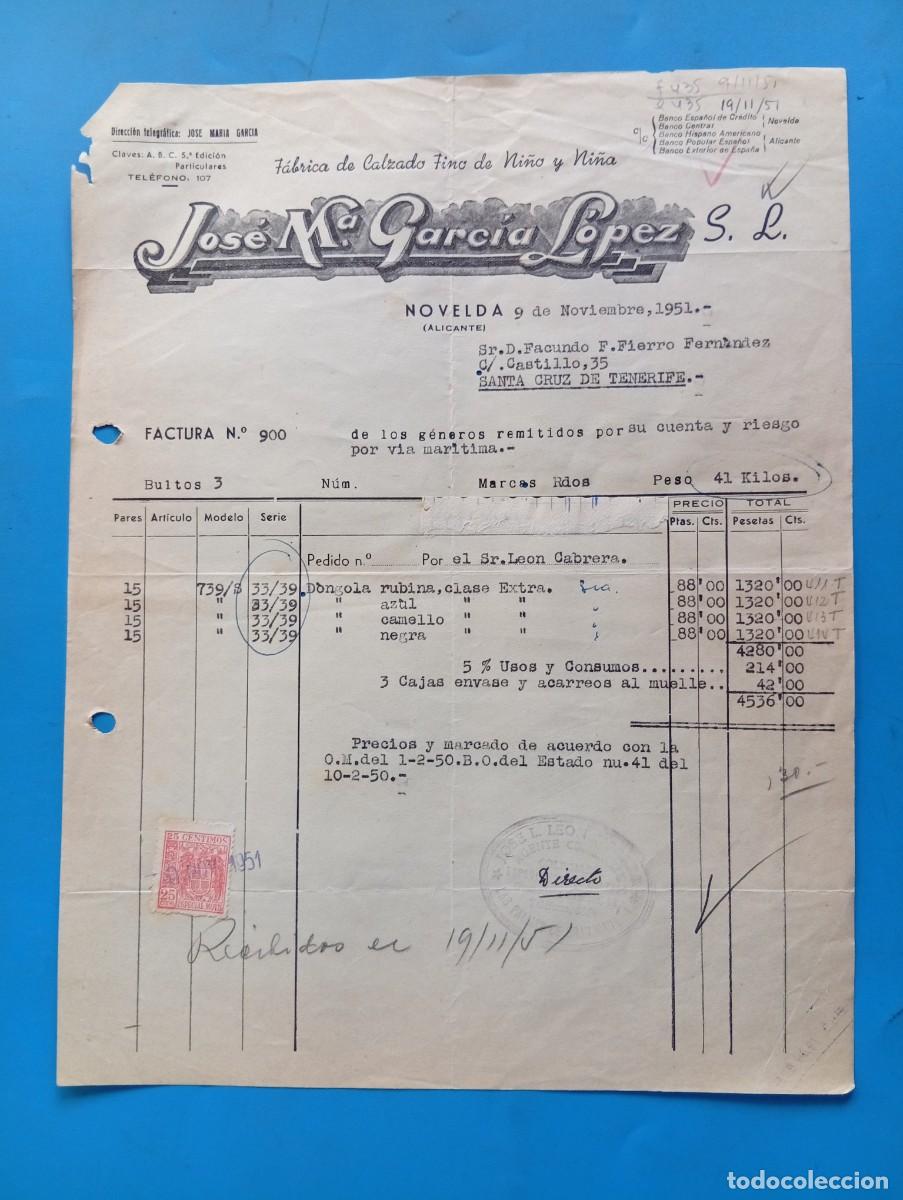 435 9/11/51
435 19/11/51
Dirección telegráfica: JOSE MARIA GARCIA
Claves: A. B. C. 5.ª Edición
Particulares
TELÉFONO, 107
c/c
Banco Español de Crédito
Banco Central
Novelda
Banco Hispano Americano
Banco Popular Español
Banco Exterior de España
Alicante
Fábrica de Calzado Fino de Niño y Niña
José Mª García López S. L.
NOVELDA 9 de Noviembre,1951.-
(ALICANTE)
Sr.D.Facundo F.Fierro Fernández
C/.Castillo,35
SANTA CRUZ DE TENERIFE.-
FACTURA N.º 900 de los géneros remitidos por su cuenta y riesgo
por via marítima.-
Bultos 3 Núm. Marcas Rdos Peso 41 Kilos.
Pares Artículo Modelo Serie PRECIO Ptas. Cts. TOTAL Pesetas Cts.
Pedido n.º Por el Sr.Leon Cabrera.
15 739/S 33/39 Dóngola rubina,clase Extra. 88'00 1320'00 411 T
15 " 33/39 " azúl " " 88'00 1320'00 412 T
15 " 33/39 " camello " " 88'00 1320'00 413 T
15 " 33/39 " negra " " 88'00 1320'00 414 T
4280'00
5 % Usos y Consumos......... 214'00
3 Cajas envase y acarreos al muelle.. 42'00
4536'00
Precios y marcado de acuerdo con la
O.M.del 1-2-50.B.O.del Estado nu.41 del
10-2-50.-
130.-
25 CENTIMOS
1951
25
ESPECIAL MOVIL
JOSE L. LEON
Directo
Recibidos el 19/11/51
todocoleccion